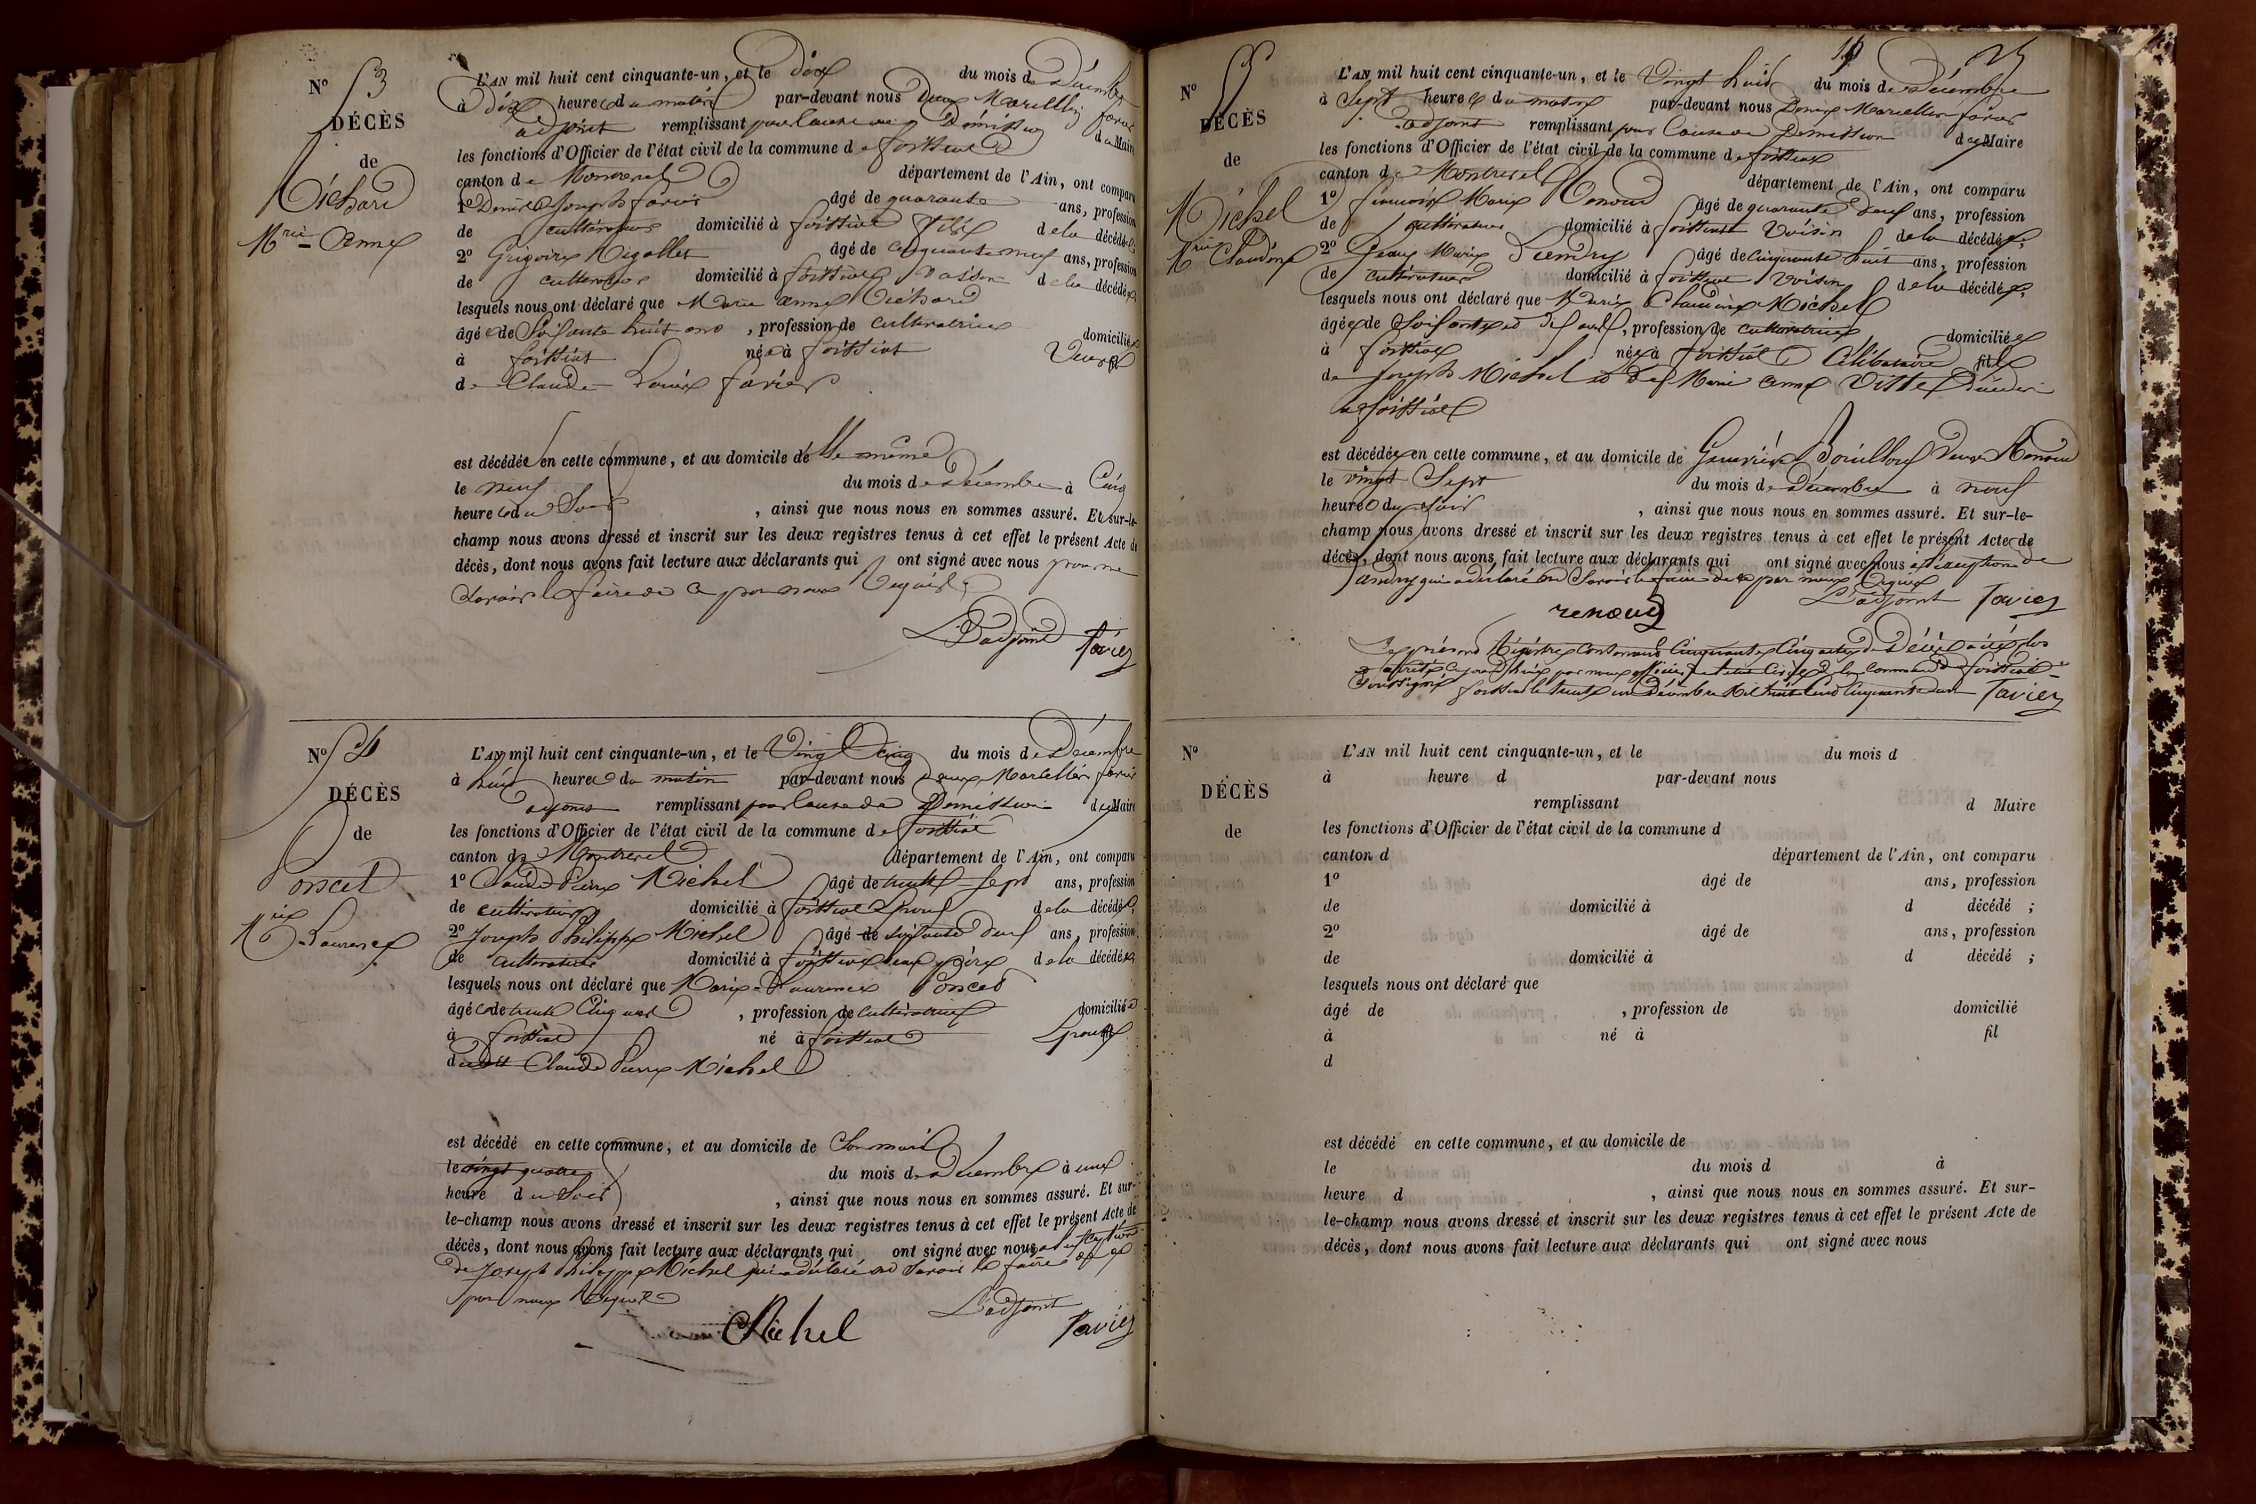 N° 53
DÉCÈS
de
Richard
Mrie Anne
L'AN mil huit cent cinquante-un, et le dix du mois de Décembre
à dix heures du matin par-devant nous Denis Marcellin favier
adjoint remplissant pour cause de Démission de Maire
les fonctions d'Officier de l'état civil de la commune de foissiat
canton de Montrevel département de l'Ain, ont comparu
1° Denis Joseph favier âgé de quarante ans, profession
de cultivateur domicilié à foissiat fils de la décédée;
2° Grégoire Rigollet âgé de cinquante neuf ans, profession
de cultivateur domicilié à foissiat de la décédée;
lesquels nous ont déclaré que Marie anne Richard
âgée de Soixante huit ans, profession de cultivatrice domiciliée
à foissiat née à foissiat Veuve
de Claude Louis favier
est décédée en cette commune, et au domicile d'elle même
le neuf du mois de Décembre à Cinq
heures du Soir, ainsi que nous nous en sommes assuré. Et sur-le-
champ nous avons dressé et inscrit sur les deux registres tenus à cet effet le présent Acte de
décès, dont nous avons fait lecture aux déclarants qui ont signé avec nous pour ne
Savoir le faire de ce par nous Requis
L'adjoint favier
N° 54
DÉCÈS
de
Poncet
Mrie Laurence
L'AN mil huit cent cinquante-un, et le Vingt Cinq du mois de Décembre
à huit heures du matin par-devant nous Denis Marcellin favier
adjoint remplissant pour cause de Démission de Maire
les fonctions d'Officier de l'état civil de la commune de foissiat
canton de Montrevel département de l'Ain, ont comparu
1° Claude Pierre Michel âgé de trente Sept ans, profession
de cultivateur domicilié à foissiat Epoux de la décédée;
2° Joseph Philippe Michel âgé de soixante deux ans, profession
de cultivateur domicilié à foissiat beau père de la décédée;
lesquels nous ont déclaré que Marie Laurence Poncet
âgée de trente Cinq ans, profession de cultivatrice domiciliée
à foissiat né à foissiat Epouse
dudit Claude Pierre Michel
est décédé en cette commune, et au domicile de Son mari
le vingt quatre du mois de Décembre à une
heure du Soir, ainsi que nous nous en sommes assuré. Et sur-
le-champ nous avons dressé et inscrit sur les deux registres tenus à cet effet le présent Acte de
décès, dont nous avons fait lecture aux déclarants qui ont signé avec nous à l'exception
de Joseph Philippe Michel qui a déclaré ne Savoir le faire de ce
par nous Requis
L'adjoint
Michel favier
N° 55
DÉCÈS
de
Michel
Mrie Claudine
L'AN mil huit cent cinquante-un, et le Vingt huit du mois de Décembre
à Sept heures du matin par-devant nous Denis Marcellin favier
adjoint remplissant pour cause de Démission de Maire
les fonctions d'Officier de l'état civil de la commune de foissiat
canton de Montrevel département de l'Ain, ont comparu
1° françois Marie Renoud âgé de quarante deux ans, profession
de cultivateur domicilié à foissiat Voisin de la décédée;
2° Jean Marie âgé de cinquante huit ans, profession
de cultivateur domicilié à foissiat Voisin de la décédée;
lesquels nous ont déclaré que Marie Claudine Michel
âgée de Soixante et dix ans, profession de cultivatrice domiciliée
à foissiat née à foissiat Célibataire fille
de Joseph Michel et de Marie anne Vitte décédés
à foissiat
est décédée en cette commune, et au domicile de Genevière Bouilloux veuve Renoud
le vingt Sept du mois de Décembre à neuf
heures du Soir, ainsi que nous nous en sommes assuré. Et sur-le-
champ nous avons dressé et inscrit sur les deux registres tenus à cet effet le présent Acte de
décès, dont nous avons fait lecture aux déclarants qui ont signé avec nous à l'exception de
qui a déclaré ne Savoir le faire de ce par nous Requis
L'adjoint favier
renoud
Le présent Régistre contenant Cinquante Cinq actes de Décès a été clos
et arrêté ce jourd'hui par nous officier de l'état Civil de la Commune de foissiat
Soussigné foissiat le trente un Décembre Mil huit Cent Cinquante un favier
N°
DÉCÈS
de
L'AN mil huit cent cinquante-un, et le du mois d
à heure d par-devant nous
remplissant d Maire
les fonctions d'Officier de l'état civil de la commune d
canton d département de l'Ain, ont comparu
1° âgé de ans, profession
de domicilié à d décédé ;
2° âgé de ans, profession
de domicilié à d décédé ;
lesquels nous ont déclaré que
âgé de , profession de domicilié
à né à fil
d
est décédé en cette commune, et au domicile de
le du mois d à
heure d , ainsi que nous nous en sommes assuré. Et sur-
le-champ nous avons dressé et inscrit sur les deux registres tenus à cet effet le présent Acte de
décès, dont nous avons fait lecture aux déclarants qui ont signé avec nous